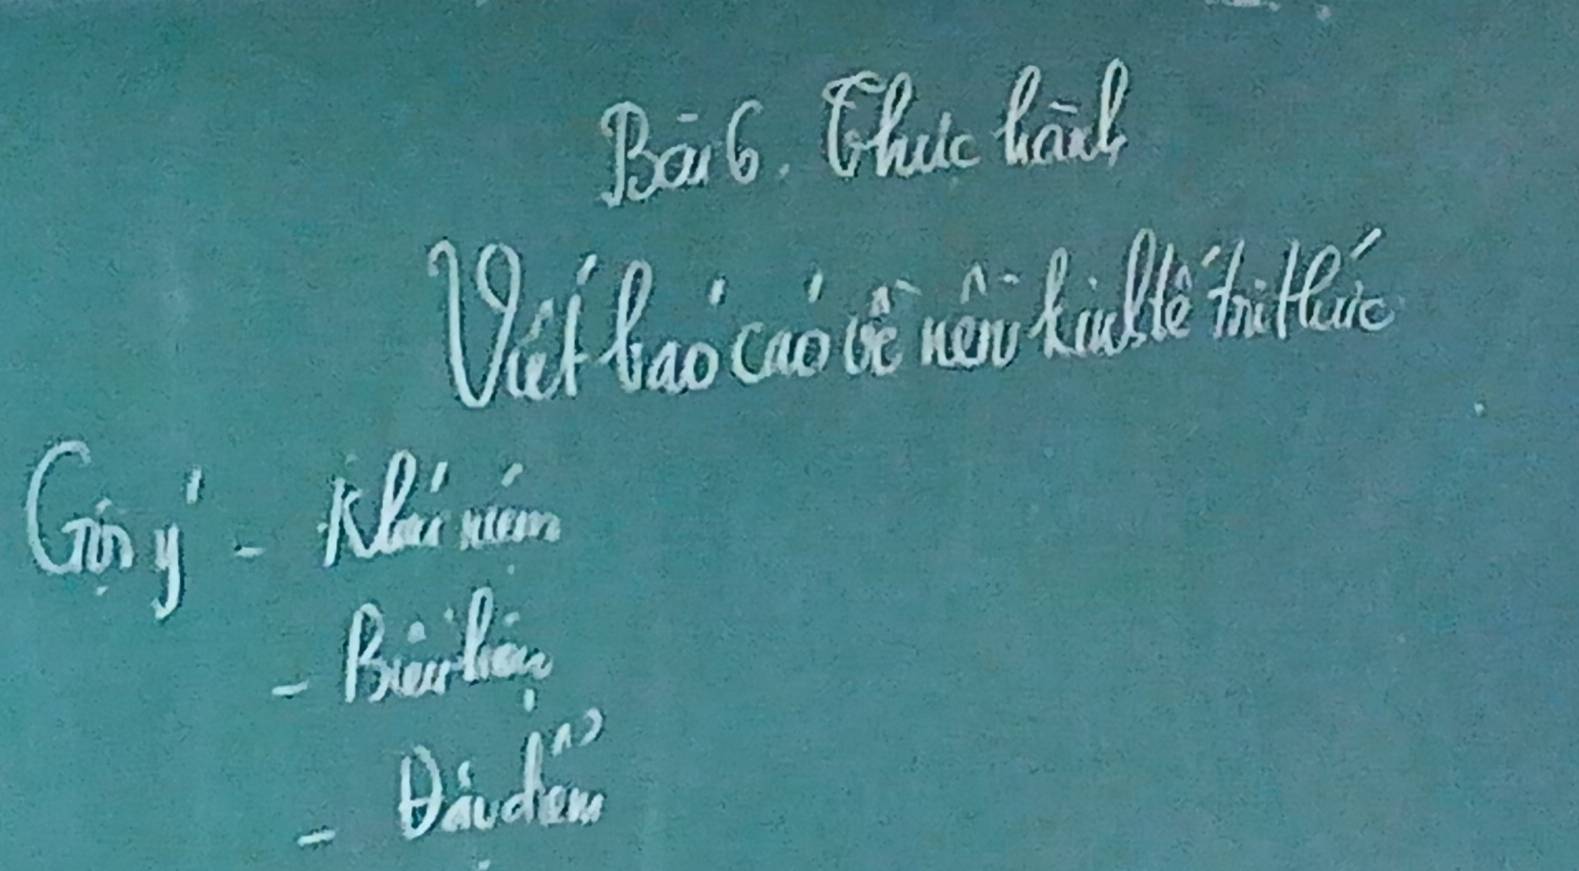 Bài 6. Thực hành
Viết báo cáo về nền kinh tế tri thức
Gợi ý - Khái niệm
- Biểu hiện
- Đặc điểm